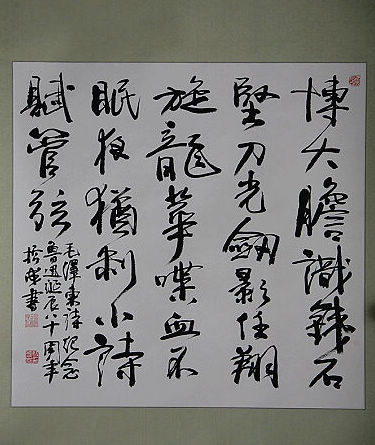 博大膽識鐵石
堅刀光劍影任翔
旋龍華喋血不
眠夜猶制小詩
賦管弦
毛澤東詩紀念
魯迅誕辰八十周年
書